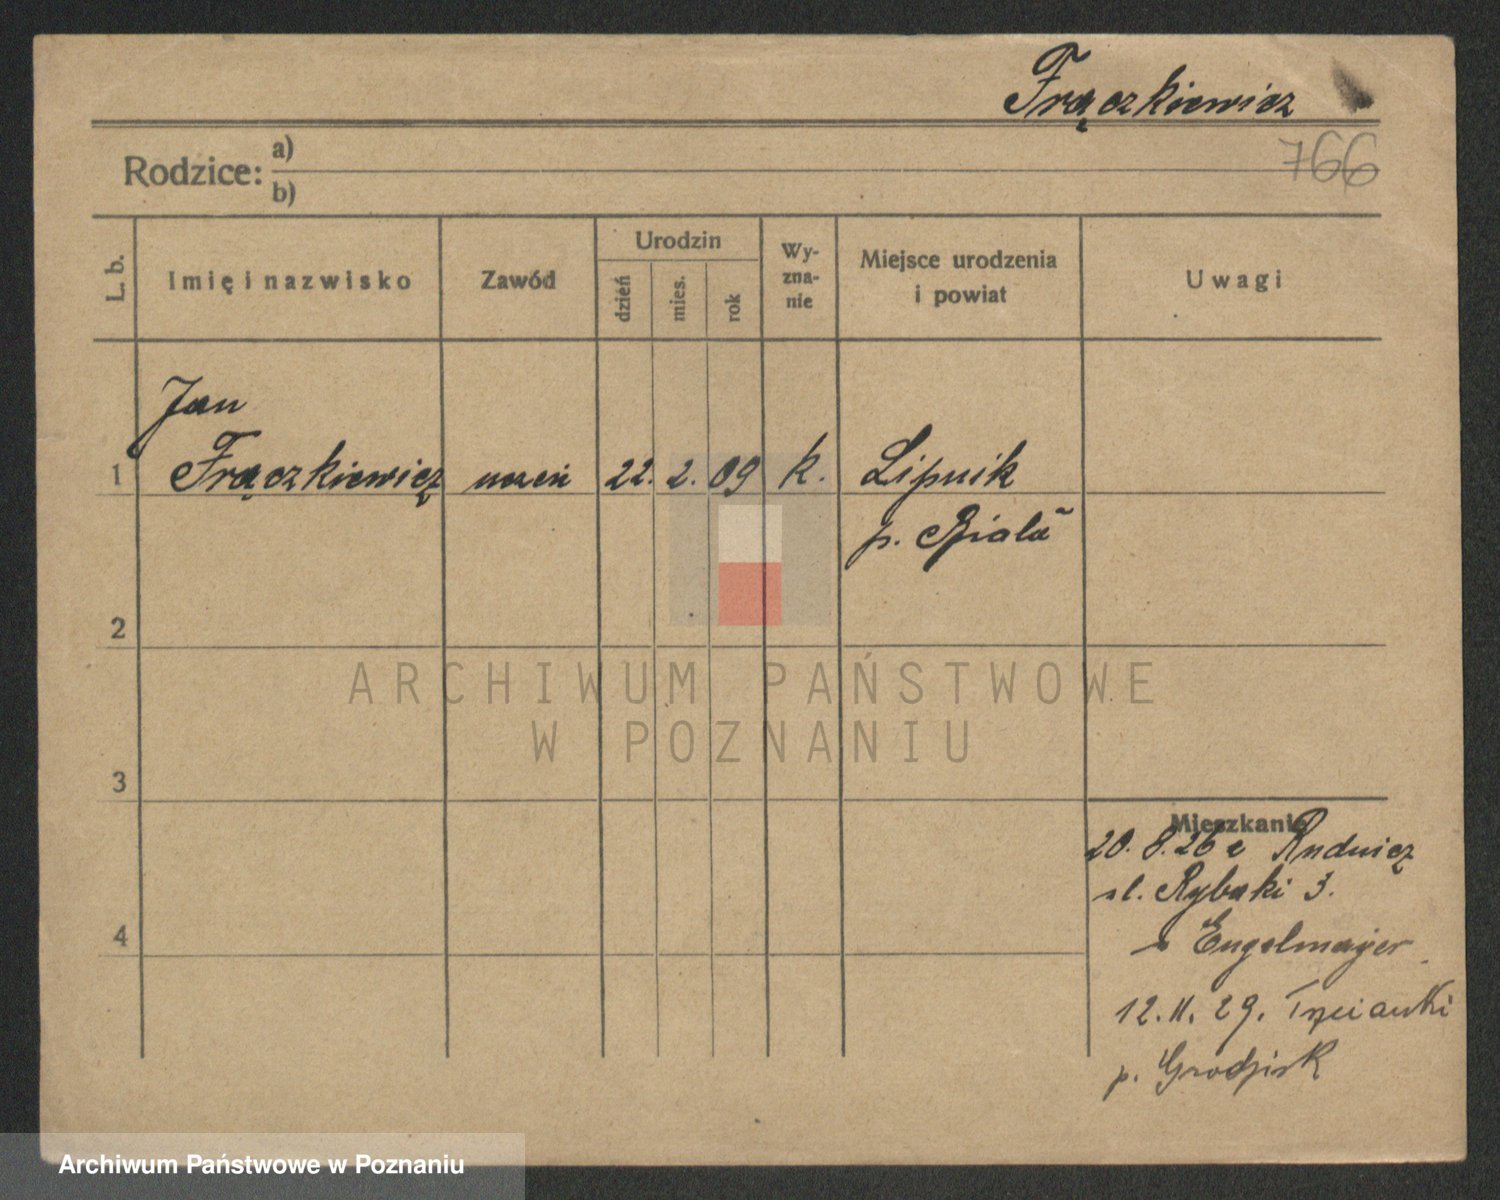 Frączkiewicz
766
Rodzice: a)
b)
L. b.
Imię i nazwisko
Zawód
Urodzin
dzień
mies.
rok
Wy-
zna-
nie
Miejsce urodzenia
i powiat
Uwagi
Jan
1 Frączkiewicz uczeń 22. 2. 09 k. Lipnik
p. Biała
2
ARCHIWUM PAŃSTWOWE
W POZNANIU
3
Mieszkanie
20. 8. 26 z Rudnicz
ul. Rybaki 3.
Engelmayer
4
12. 11. 29. Trzcianki
p. Grodzisk
Archiwum Państwowe w Poznaniu